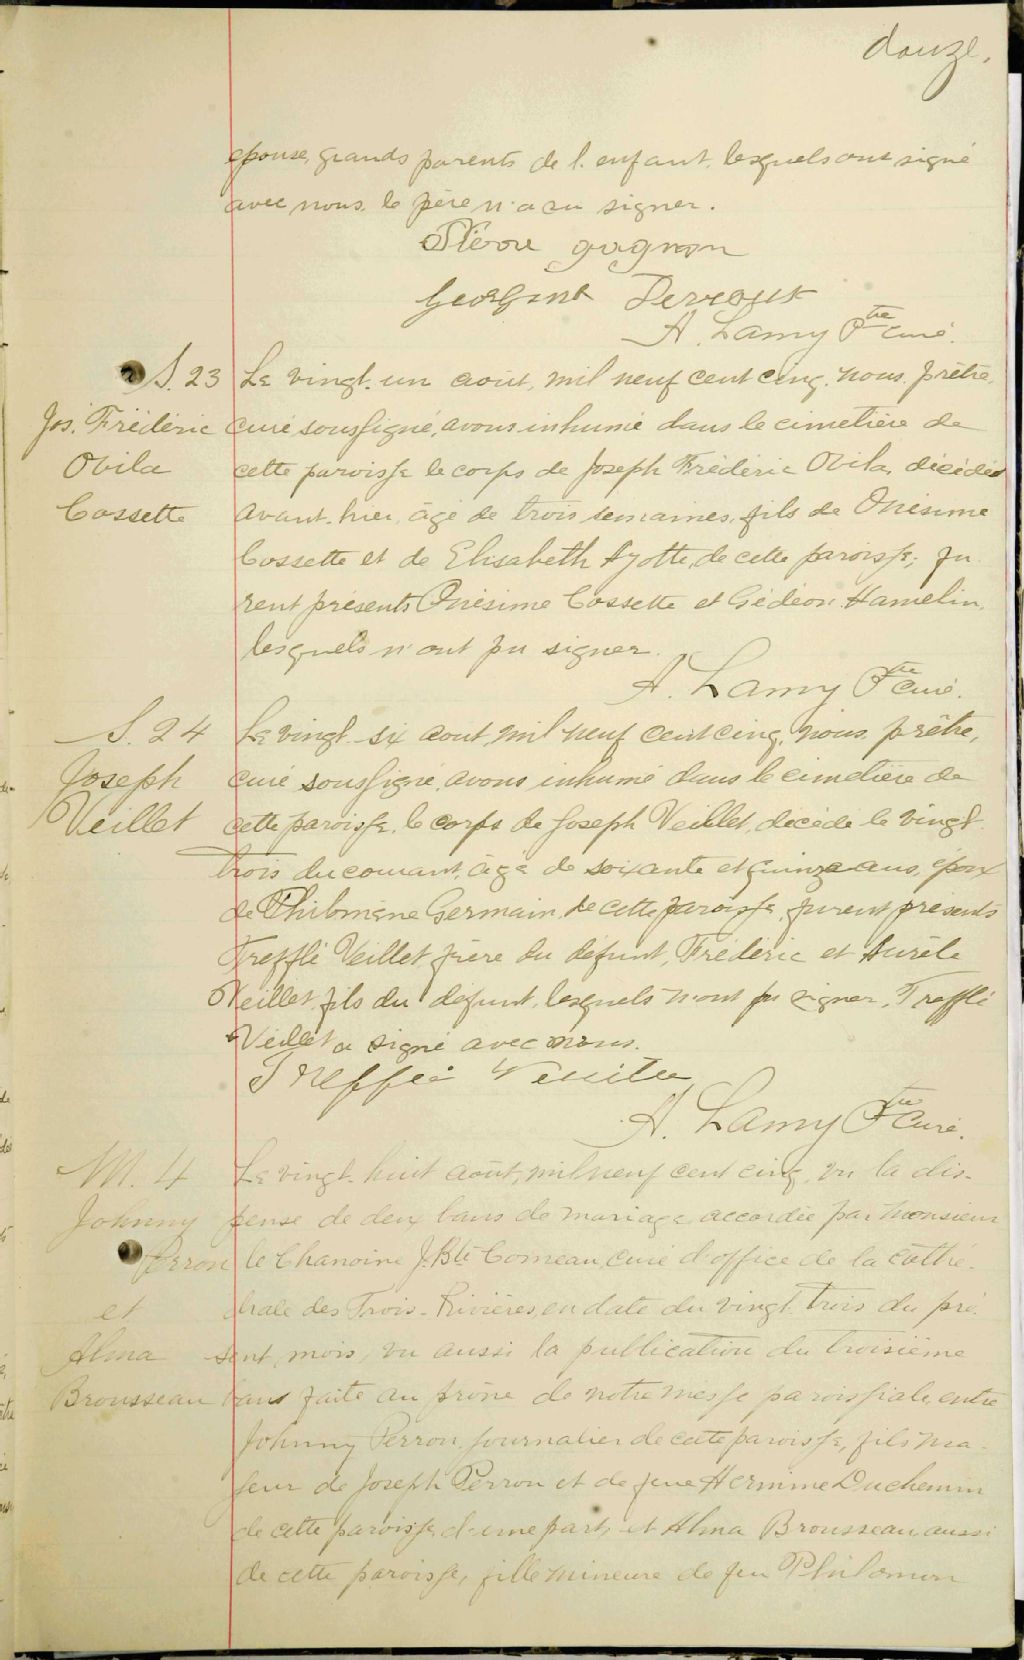 douze.
épouse, grands parents de l'enfant, lesquels ont signé
avec nous. le père n'a su signer.
gagnon
Georgina
A. Lamy Ptre curé.
S. 23
Jos. Frédéric
Ovila
Cossette
Le vingt-un août, mil neuf cent cinq, nous, prêtre,
curé soussigné, avons inhumé dans le cimetière de
cette paroisse le corps de Joseph Frédéric Ovila, décédé
avant-hier, âgé de trois semaines, fils de Onésime
Cossette et de Elisabeth Ayotte, de cette paroisse; fu
rent présents Onésime Cossette et Gédéon Hamelin,
lesquels n'ont pu signer.
A. Lamy Ptre curé.
S. 24
Joseph
Veillet
Le vingt-six aout, mil neuf cent cinq, nous, prêtre,
curé soussigné, avons inhumé dans le cimetière de
cette paroisse, le corps de Joseph Veillet, décédé le vingt
trois du courant, âgé de soixante et quinze ans, époux
de Philomène Germain, de cette paroisse, furent présents
Trefflé Veillet frère du défunt, Frédéric et Aurèle
Veillet, fils du défunt, lesquels n'ont pu signer. Trefflé
Veillet a signé avec nous.
Treffle
A. Lamy Ptre Curé.
M. 4
Johnny
Perron
et
Alma
Brousseau
Le vingt-huit août, mil neuf cent cinq, vu la dis-
pense de deux bans de mariage accordée par Monsieur
le Chanoine J. Bte Comeau, curé d'office de la cathé-
drale des Trois-Rivières, en date du vingt-trois du pré-
sent mois, vu aussi la publication du troisième
bans faite au prône de notre messe paroissiale, entre
Johnny Perron, journalier de cette paroisse, fils ma-
jeur de Joseph Perron et de feue Hermine Duchemin
de cette paroisse, d'une part, et Alma Brousseau, aussi
de cette paroisse, fille mineure de feu Philomon